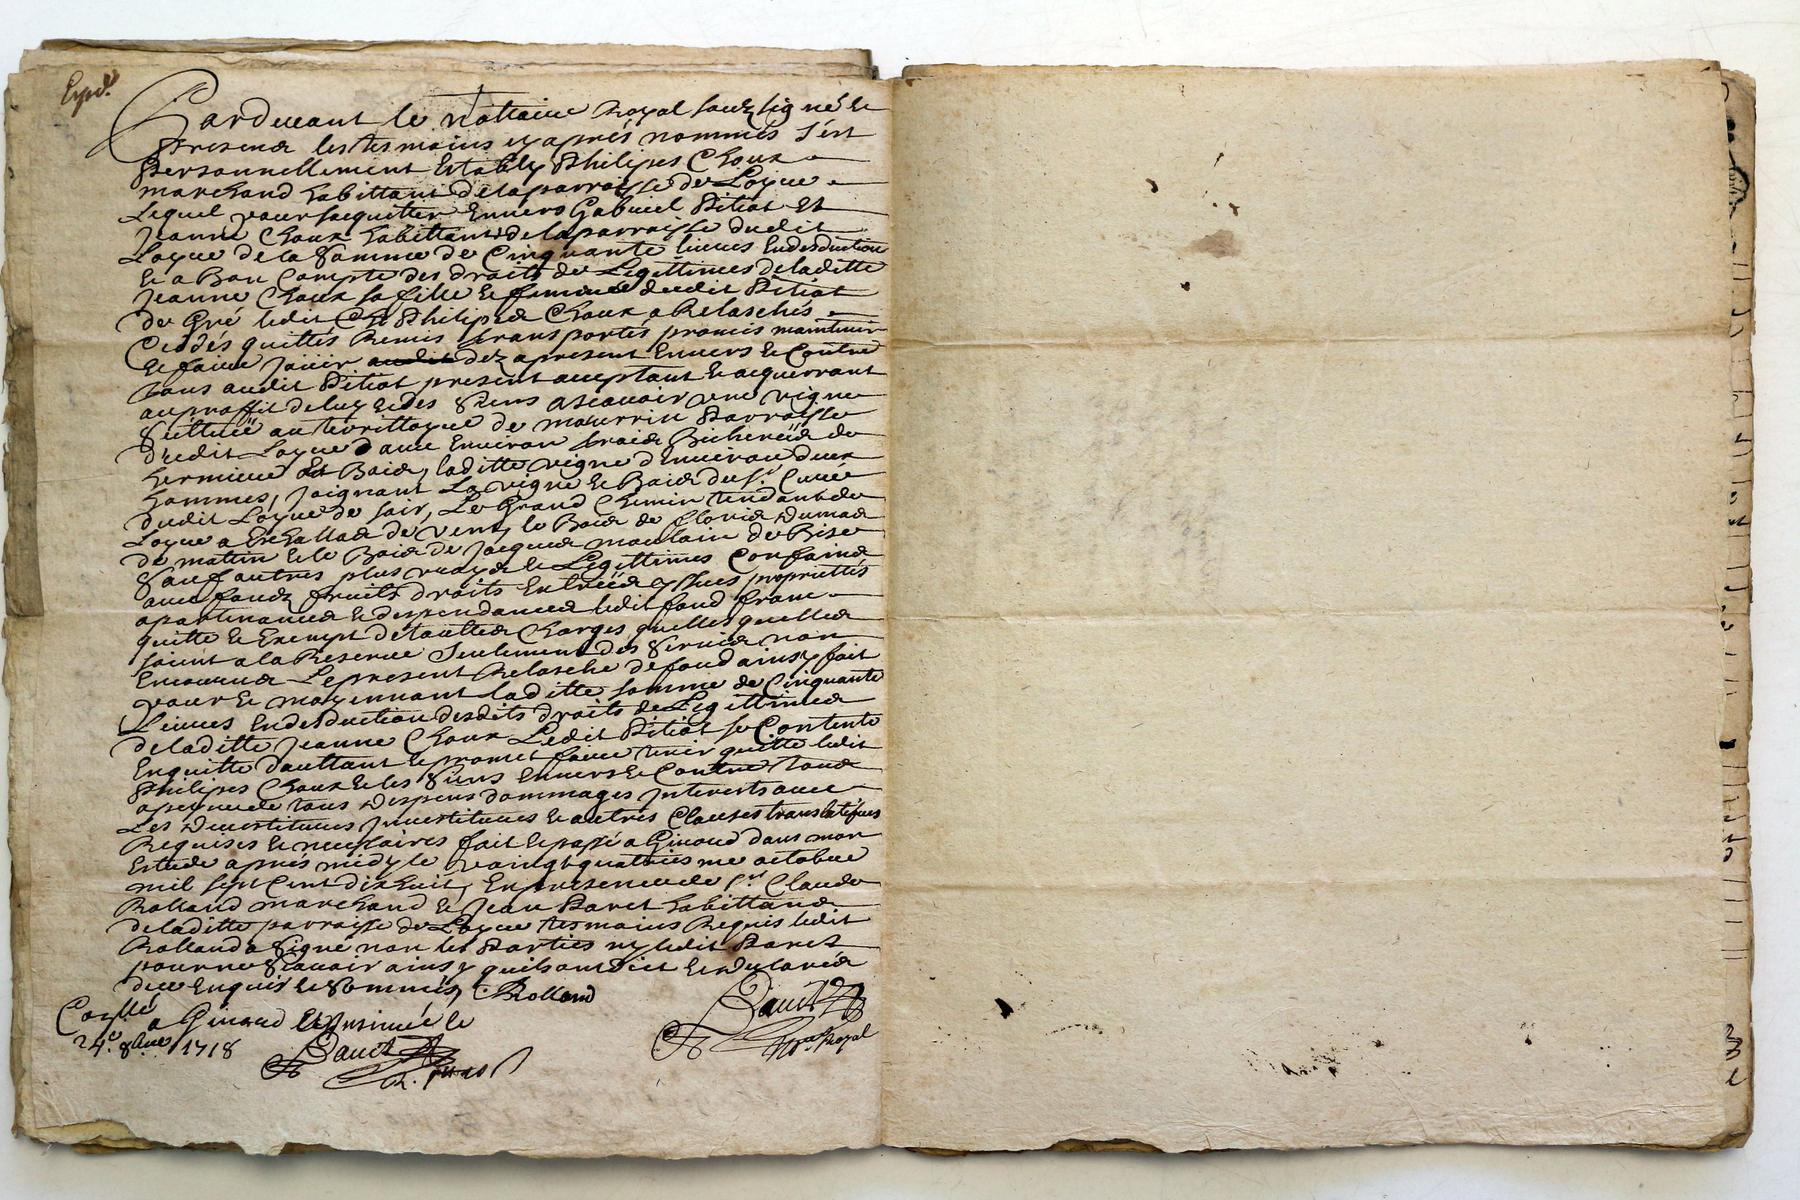 Expé.
Pardevant le nottaire Royal soubzsigné et
presence les tesmoins cy aprés nommés s'est
personnellement Estably Philipes Choux
marchand habittant de la parroisse de Loyue
Lequel pour s'acquitter Envers Gabriel Pitiot Et
Jeanne Choux habittants de la parroisse dudit
Loyue de la somme de Cinquante livres En desduction
Et a Bon Compte des droits de Legittimes de laditte
Jeanne Choux sa fille et femme dudit Pitiot
de Gré ledit Philipes Choux a Relaschés
Ceddés quittés Remis transportés promis maintenir
Et faire Jouir dez apresent Envers et Contre
tous audit Pitiot present acceptant et acquerrant
au proffit de luy et des siens ascavoir une vigne
scittuée au territtoyre de mourrin Parroisse
dudit Loyue avec Environ trois Bicherées de
hermieue et Bois, laditte vigne d'Environ deux
hommes, Joignant La vigne et Bois du sr. Curée
dudit Loyue de soir, Le Grand Chemin tendant de
Loyue a de vent, le Bois de
de mattin et le Bois de Jacques moulain de Bise
sauf autres plus vrays et Legittimes Confains
avec fondz fruits droits Entrées yssues propriettés
apartenances et despendances ledit fond franc
quitte et Exempt de touttes Charges quelles quelles
soient a la Reserve Seulement des servis non
Encourus Le present Relasché de fond ainsy fait
pour et moyennant laditte somme de Cinquante
Livres En desduction desdits droits de Legittimes
de laditte Jeanne Choux Ledit Pitiot se Contente
Enquitte d'auttant et promet faire tenir quitte ledit
Philipes Choux et les siens Envers et Contre tous
a peyne de tous despens dommages Interests avec
Les devestitures Jnvestitures et autres Clauses translatifves
Requises et necessaires fait et passé a Givord dans mon
Estude aprés midy le vaingt quatriesme octobre
mil sept Cent dix huit, En presence de sr. Claude
Rolland marchand et Jean Paret habittans
de laditte parroisse de Loyue tesmoins Requis ledit
Rolland a signé non les Parties ny ledit Paret
pour ne scavoir ainsy quils ont dict Et declarés
de ce Enquis et sommés, C Rolland
Conllé a Givord Et Insinuée le
24e. 8bre 1718
nore Royal